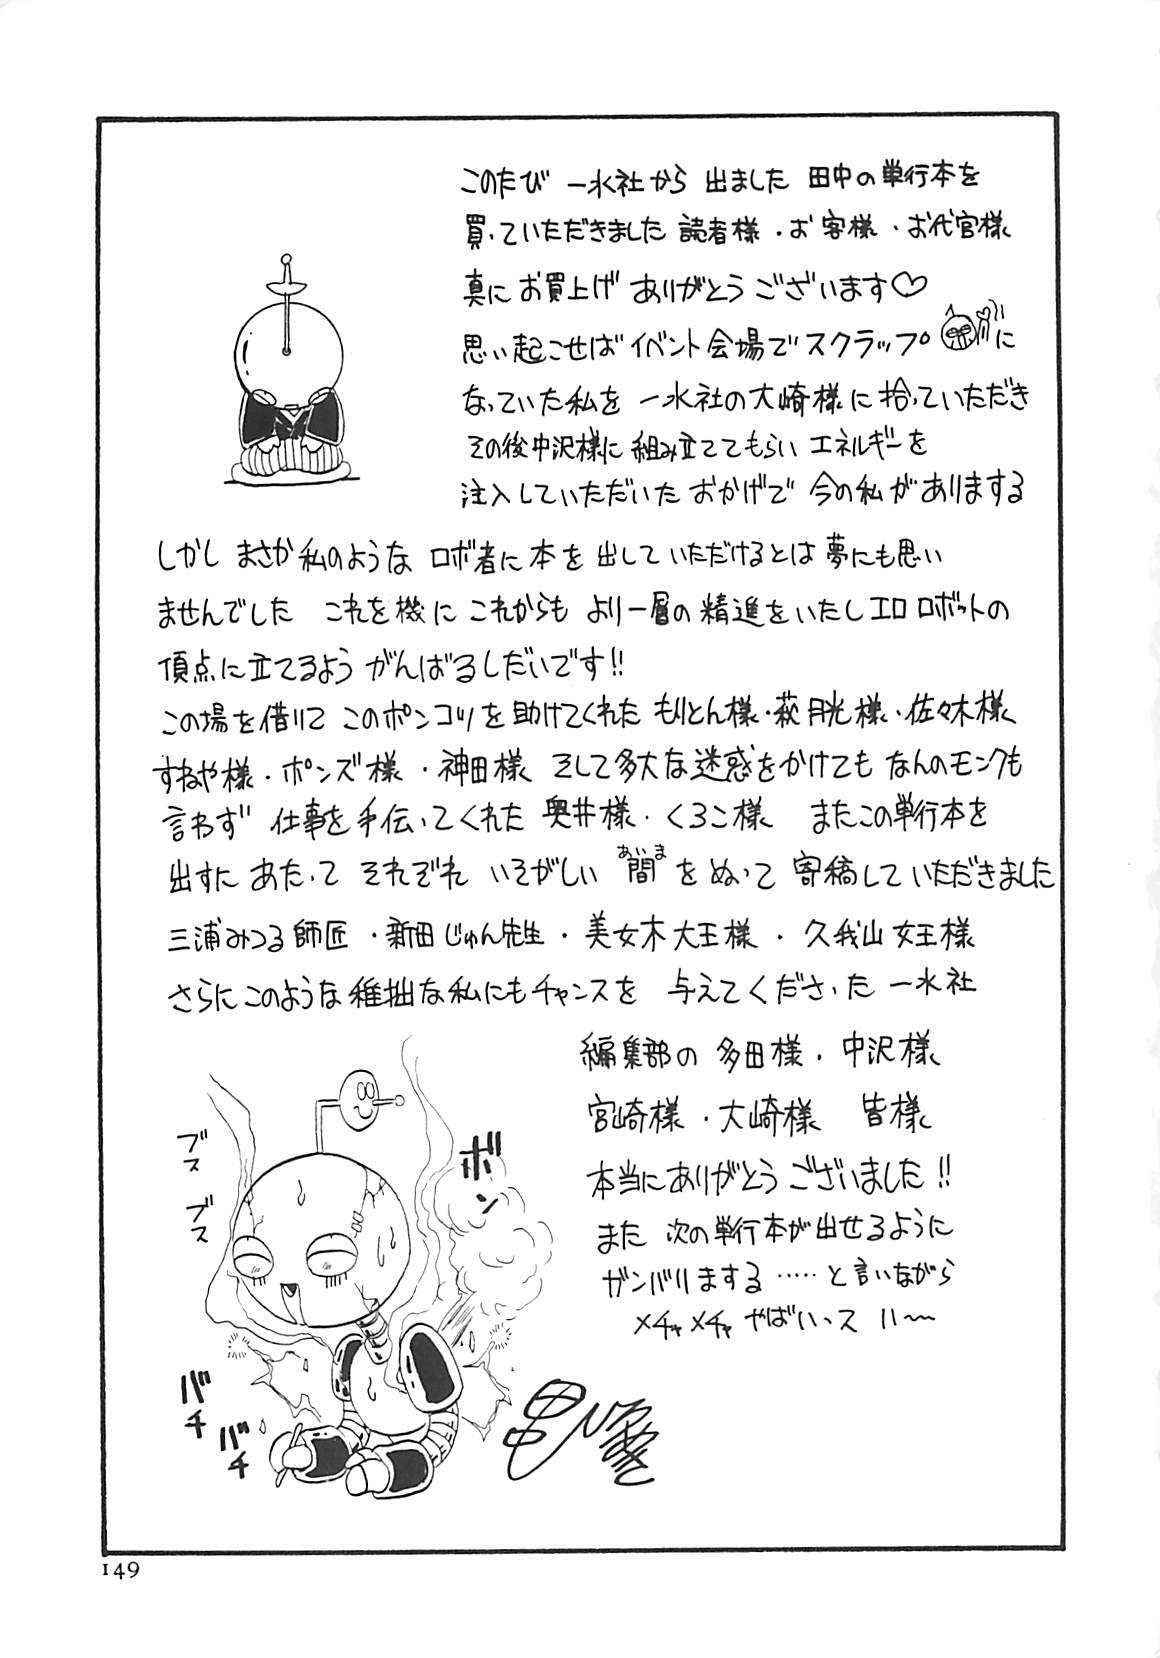 このたび 一水社から 出ました 田中の単行本を
買っていただきました 読者様・お客様・お代官様
真に お買上げ ありがとう ございます♡
思い起こせば イベント会場で スクラップ に
なっていた私を 一水社の大崎様に 拾っていただき
その後中沢様に 組み立ててもらい エネルギーを
注入していただいた おかげで 今の私がありまする
しかし まさか私のような ロボ者に 本を 出していただけるとは夢にも思い
ませんでした これを機に これからも より一層の精進をいたしエロロボットの
頂点に立てるよう がんばるしだいです!!
この場を借りて このポンコツを助けてくれた もりとん様・萩月光様・佐々木様
すねや様・ポンズ様・神田様 そして多大な迷惑をかけても なんのモンクも
言わず 仕事を手伝ってくれた 奥井様・くろこ様 またこの単行本を
出すに あたって それぞれ いそがしい 間(あいま)をぬって 寄稿していただきました
三浦みつる師匠・新田じゅん先生・美女木大王様・久我山女王様
さらにこのような稚拙な私にもチャンスを 与えてくださった 一水社
編集部の 多田様・中沢様
宮崎様・大崎様 皆様
本当にありがとうございました!!
また 次の単行本が出せるように
ガンバリまする……と言いながら
メチャメチャ やばいっス
ブス
ブス
ボン
バチ
バチ
149